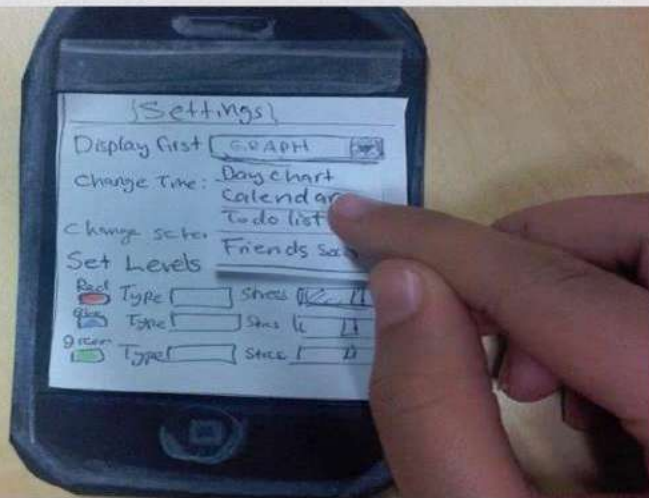 Settings
Display first GRAPH
Change Time:
Day chart
Calendar
To do list
Friends
Change
Set Levels
Red Type Stress
Blue Type Stress
green Type Stress